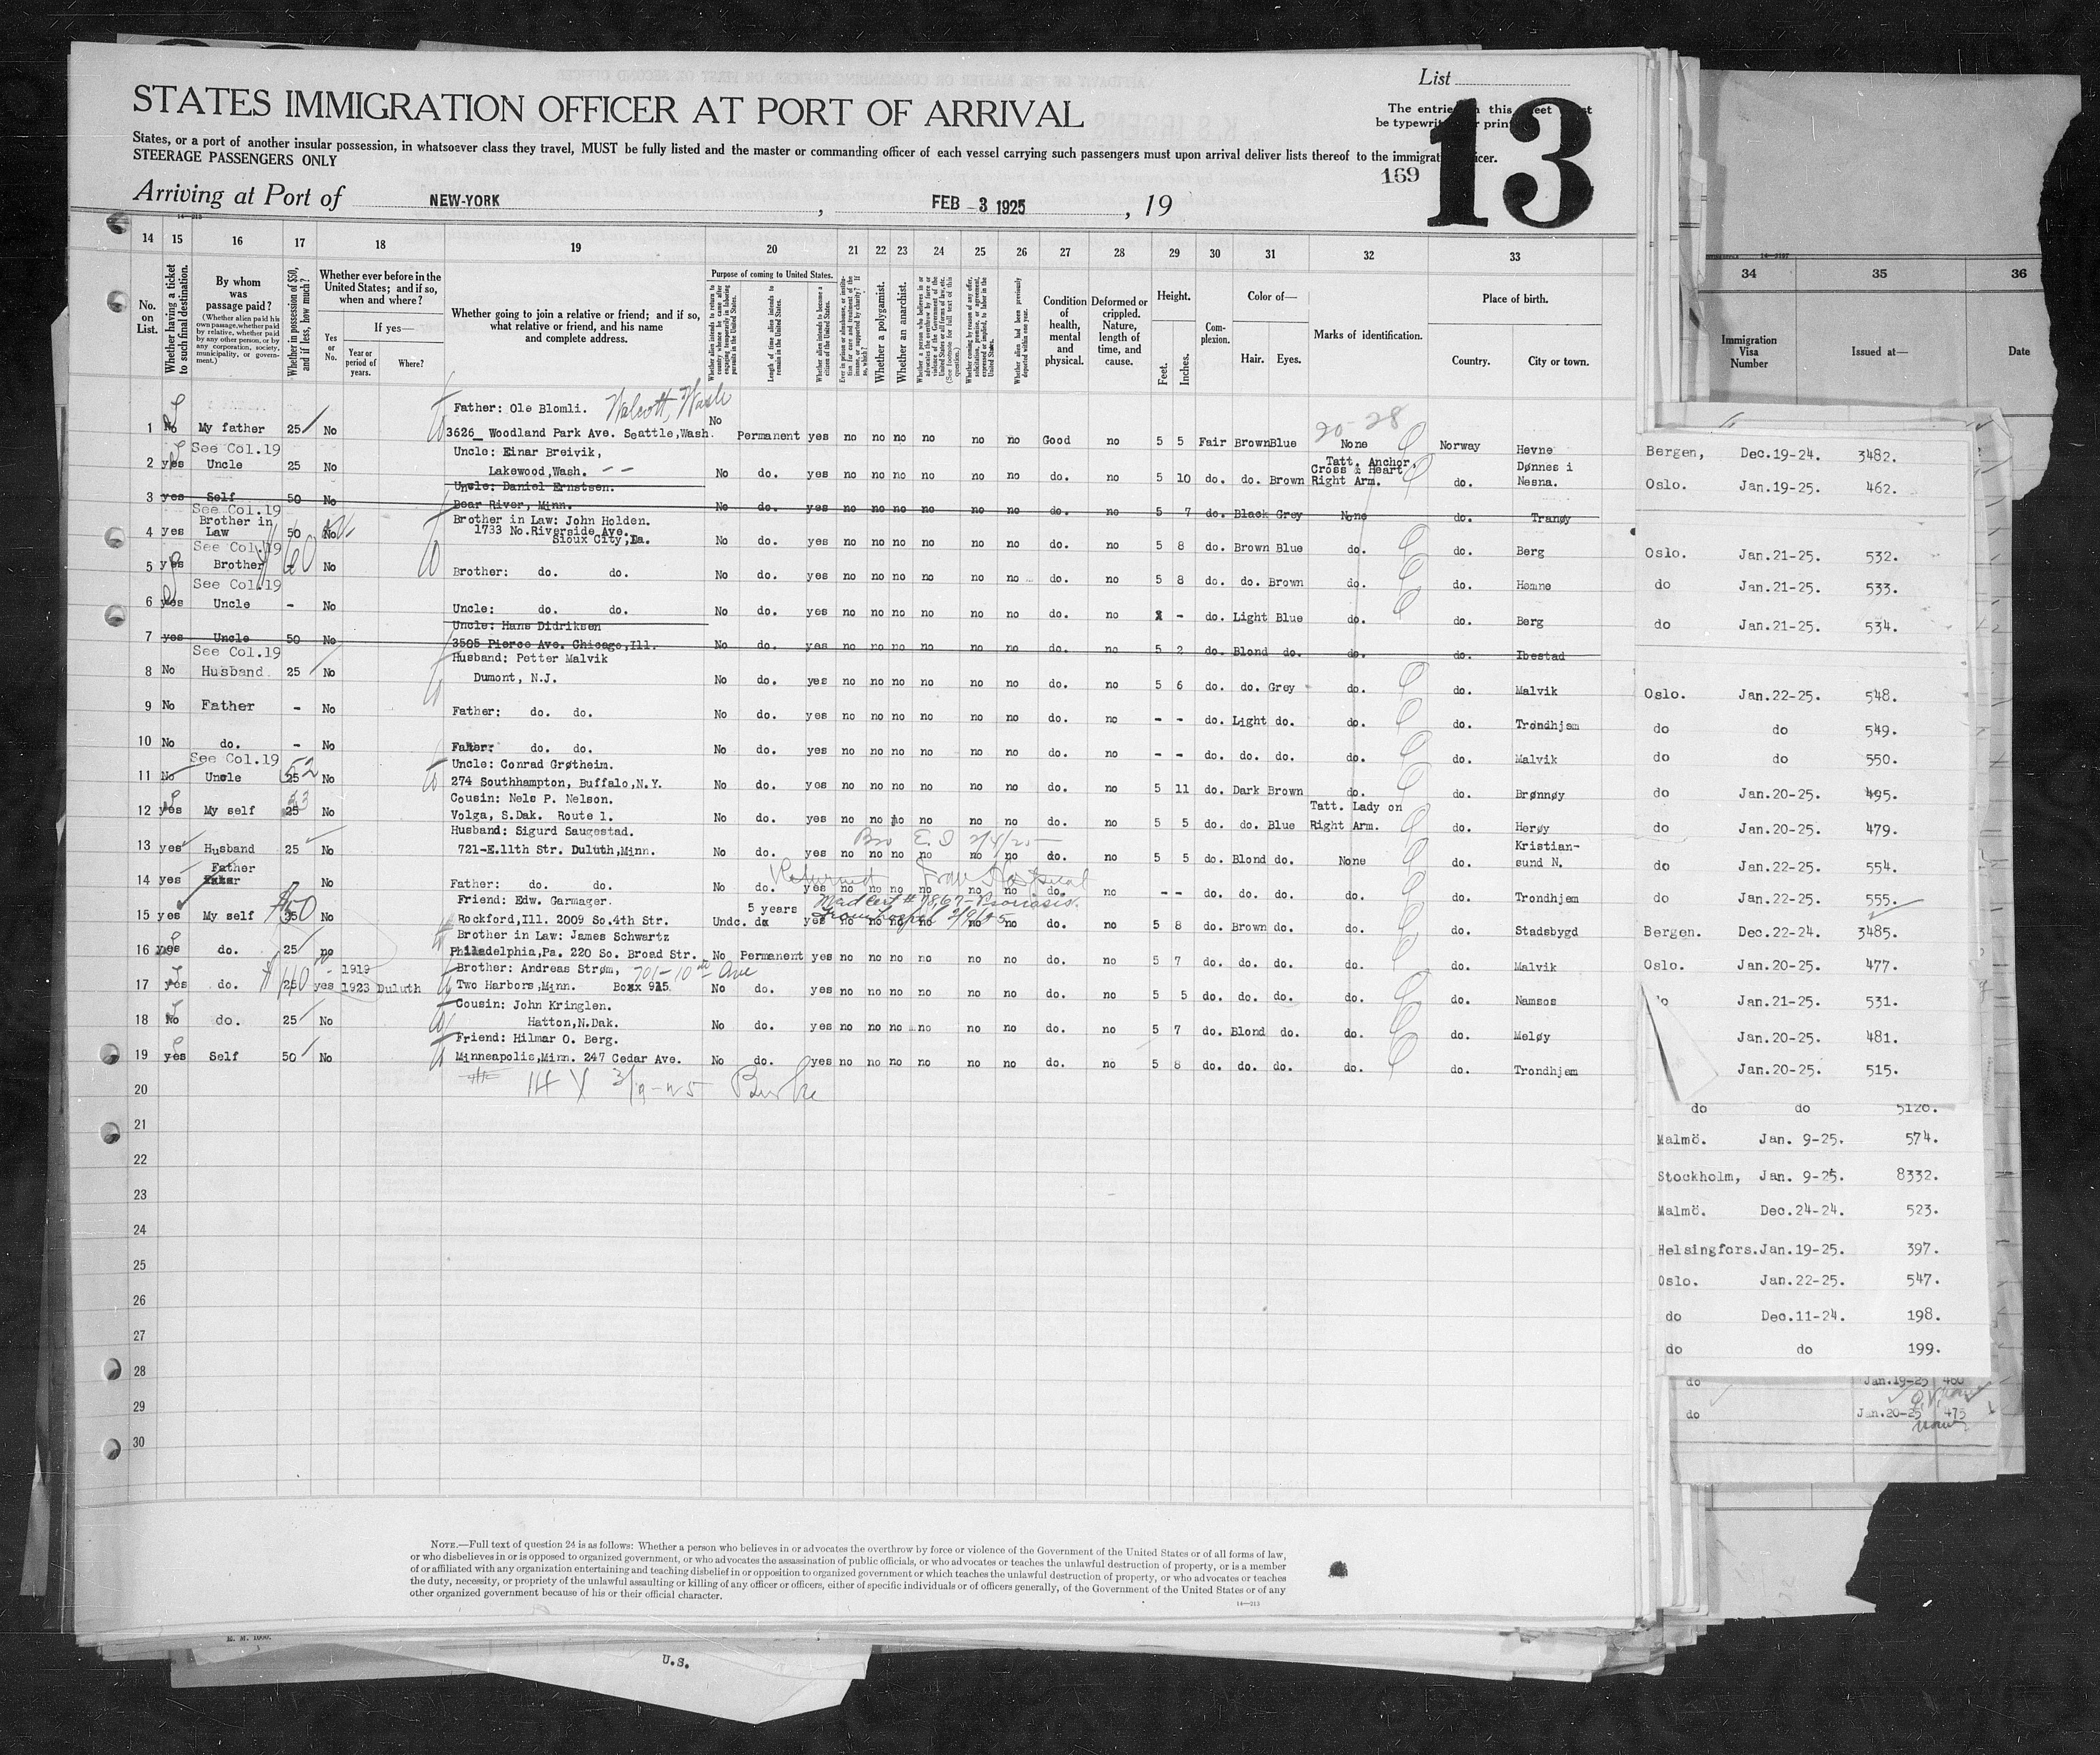 List
STATES IMMIGRATION OFFICER AT PORT OF ARRIVAL
The entries this sheet
be typewrit print
13
States, or a port of another insular possession, in whatsoever class they travel, MUST be fully listed and the master or commanding officer of each vessel carrying such passengers must upon arrival deliver lists thereof to the immigrat icer.
STEERAGE PASSENGERS ONLY
169
Arriving at Port of NEW-YORK, FEB -3 1925, 19
14 15 16 17 18 19 20 21 22 23 24 25 26 27 28 29 30 31 32 33 34 35 36
No. on List.
Whether having a ticket to such final destination.
By whom was passage paid?
(Whether alien paid his own passage, whether paid by relative, whether paid by any other person, or by any corporation, society, municipality, or government.)
Whether in possession of $50, and if less, how much?
Whether ever before in the United States; and if so, when and where?
Yes or No.
If yes—
Year or period of years.
Where?
Whether going to join a relative or friend; and if so, what relative or friend, and his name and complete address.
Purpose of coming to United States.
Whether alien intends to return to country whence he came after engaging temporarily in laboring pursuits in the United States.
Length of time alien intends to remain in the United States.
Whether alien intends to become a citizen of the United States.
Ever in prison or almshouse, or institution for care and treatment of the insane, or supported by charity? If so, which?
Whether a polygamist.
Whether an anarchist.
Whether a person who believes in or advocates the overthrow by force or violence of the Government of the United States or all forms of law, etc. (See footnote for full text of this question.)
Whether coming by reason of any offer, solicitation, promise, or agreement, expressed or implied, to labor in the United States.
Whether alien had been previously deported within one year.
Condition of health, mental and physical.
Deformed or crippled. Nature, length of time, and cause.
Height.
Feet. Inches.
Complexion.
Color of—
Hair. Eyes.
Marks of identification.
Place of birth.
Country. City or town.
Immigration Visa Number
Issued at—
Date
Father: Ole Blomli. Wash
1 No My father 25 No 3626 Woodland Park Ave. Seattle,Wash. No Permanent yes no no no no no no Good no 5 5 Fair Brown Blue None Norway Hevne
20-28
See Col.19 Uncle: Einar Breivik, Tatt. Anchor, Dønnes i
2 yes Uncle 25 No Lakewood,Wash. No do. yes no no no no no no do. no 5 10 do. do. Brown Cross & Heart Right Arm. do. Nesna.
Uncle: Daniel Ernstsen.
3 yes Self 50 No Bear River, Minn. No do. yes no no no no no no do. no 5 7 do. Black Grey None do. Tranøy
See Col.19 Brother in Law: John Holden.
4 yes Brother in Law 50 No 1733 No.Riverside Ave. Sioux City,Ia. No do. yes no no no no no no do. no 5 8 do. Brown Blue do. do. Berg
See Col.19
5 yes Brother - No Brother: do. do. No do. yes no no no no no no do. no 5 8 do. do. Brown do. do. Hemne
See Col.19
6 yes Uncle - No Uncle: do. do. No do. yes no no no no no no do. no - do. Light Blue do. do. Berg
Uncle: Hans Didriksen
7 yes Uncle 50 No 3505 Pierce Ave. Chicago,Ill. No do. yes no no no no no no do. no 5 2 do. Blond do. do. do. Ibestad
See Col.19 Husband: Petter Malvik
8 No Husband 25 No Dumont, N.J. No do. yes no no no no no no do. no 5 6 do. do. Grey do. do. Malvik
9 No Father - No Father: do. do. No do. yes no no no no no no do. no - - do. Light do. do. do. Trondhjem
10 No do. - No Father: do. do. No do. yes no no no no no no do. no - - do. do. do. do. do. Malvik
See Col.19 Uncle: Conrad Grøtheim.
11 No Uncle 25 52 No 274 Southhampton, Buffalo,N.Y. No do. yes no no no no no no do. no 5 11 do. Dark Brown do. do. Brønnøy
Cousin: Nels P. Nelson. Tatt. Lady on
12 yes My self 25 No Volga, S.Dak. Route 1. No do. yes no no no no no no do. no 5 5 do. do. Blue Right Arm. do. Herøy
Husband: Sigurd Saugestad. Kristian-
13 yes Husband 25 No 721-E.11th Str. Duluth,Minn. No do. yes no no no no no no do. no 5 5 do. Blond do. None do. sund N.
Father
14 yes No Father: do. do. No do. yes no no no no no no do. no - - do. do. do. do. do. Trondhjem
Returned from Hospital
Friend: Edw. Garmager. 5 years
Med Cert # 7867-Psoriasis.
15 yes My self 35 $50 No Rockford,Ill. 2009 So.4th Str. Undc. yes no no no no no no do. no 5 8 do. Brown do. do. do. Stadsbygd
Brother in Law: James Schwartz
16 yes do. 25 no Philadelphia,Pa. 220 So. Broad Str. No Permanent yes no no no no no no do. no 5 7 do. do. do. do. do. Malvik
1919 Brother: Andreas Strøm, 701-10th Ave
17 yes do. 25 $40 yes 1923 Duluth Two Harbors,Minn. Box 915 No do. yes no no no no no no do. no 5 5 do. do. do. do. do. Namsos
Cousin: John Kringlen.
18 No do. 25 No Hatton,N.Dak. No do. yes no no no no no no do. no 5 7 do. Blond do. do. do. Meløy
Friend: Hilmar O. Berg.
19 yes Self 50 No Minneapolis,Minn. 247 Cedar Ave. No do. yes no no no no no no do. no 5 8 do. do. do. do. do. Trondhjem
20 Burke
21
22
23
24
25
26
27
28
29
30
Bergen, Dec.19-24. 3482.
Oslo. Jan.19-25. 462.
Oslo. Jan.21-25. 532.
do Jan.21-25. 533.
do Jan.21-25. 534.
Oslo. Jan.22-25. 548.
do do 549.
do do 550.
do Jan.20-25. 495.
do Jan.20-25. 479.
do Jan.22-25. 554.
do Jan.22-25. 555.
Bergen. Dec.22-24. 3485.
Oslo. Jan.20-25. 477.
do Jan.21-25. 531.
Jan.20-25. 481.
Jan.20-25. 515.
do do 5126.
Malmö. Jan. 9-25. 574.
Stockholm, Jan. 9-25. 8332.
Malmö. Dec.24-24. 523.
Helsingfors.Jan.19-25. 397.
Oslo. Jan.22-25. 547.
do Dec.11-24. 198.
do do 199.
do Jan.19-25 460
do Jan.20-25 475
NOTE.—Full text of question 24 is as follows: Whether a person who believes in or advocates the overthrow by force or violence of the Government of the United States or of all forms of law,
or who disbelieves in or is opposed to organized government, or who advocates the assassination of public officials, or who advocates or teaches the unlawful destruction of property, or is a member
of or affiliated with any organization entertaining and teaching disbelief in or opposition to organized government or which teaches the unlawful destruction of property, or who advocates or teaches
the duty, necessity, or propriety of the unlawful assaulting or killing of any officer or officers, either of specific individuals or of officers generally, of the Government of the United States or of any
other organized government because of his or their official character.
14—213
U.S.